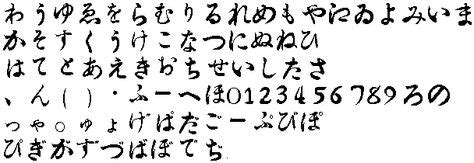 わうゆゑをらむりるれめもやにゐよみいま
かそすくうけこなつにぬねひ
はてとあえきおちせいしたさ
、ん()・ふーへほ0123456789ろの
っゃ。ゅょげぱだごーぷぴぽ
ぴぎがずづばぼでぢ